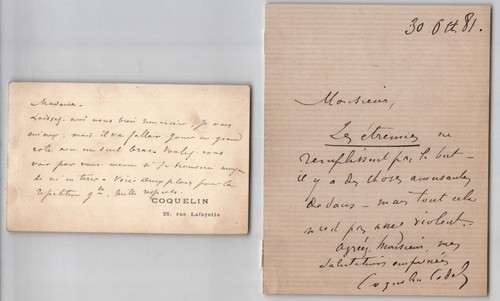 Madame -
Laissez moi vous bien remercier, je vous
mieux, mais il va falloir jouer un grand
rôle avec un seul bras. Voulez vous
voir par vous même si je trouverai moyen
de m'en tirer - Voici deux places pour la
répétition gle. Mille respects.
COQUELIN
28, rue Lafayette
30 Oct. 81.
Monsieur,
Les étrennes ne
remplissent pas le but -
il y a des choses amusantes
dedans - mais tout cela
n'est pas assez violent.
Agréez, Monsieur, mes
salutations empressées
Coquelin Cadet